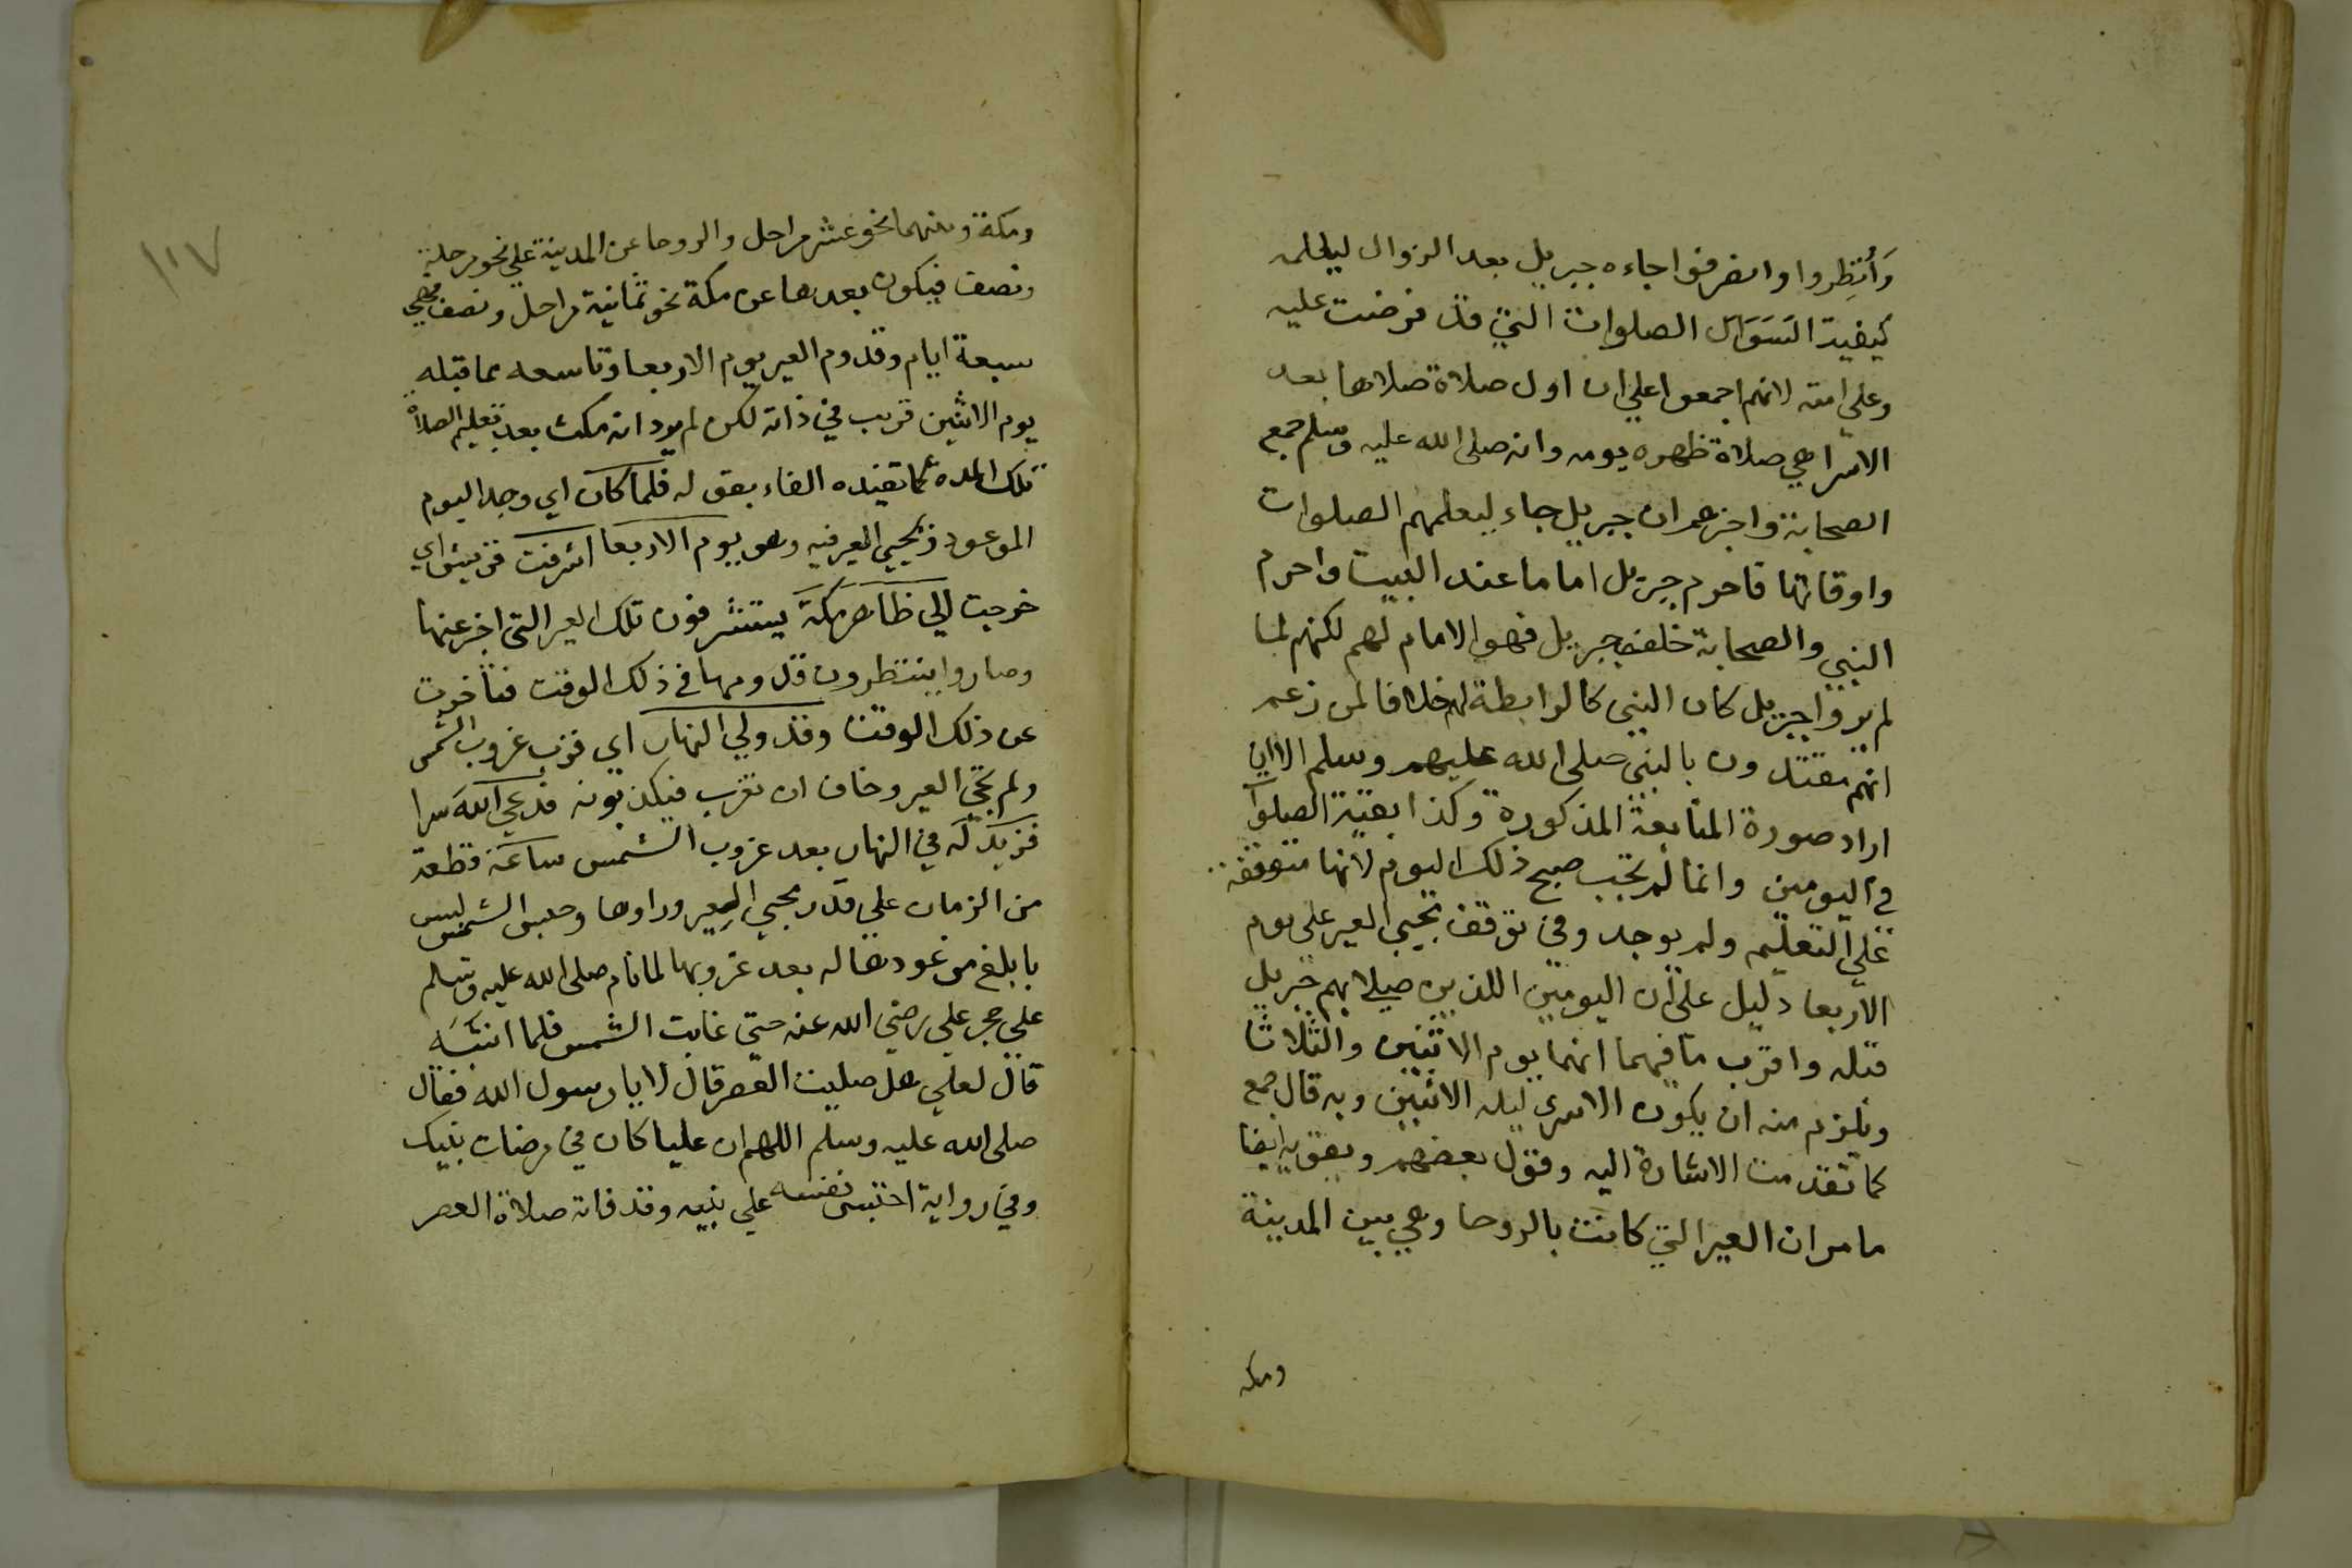 وَأُنْظِروا وانصرفوا جاءه جبريل بعد الزوال ليعلمه
كيفية الصلوات التي قد فرضت عليه
وعلى امته لانهم اجمعوا علي ان اول صلاة صلاها بعد
الاسرا هي صلاة ظهره يومه وانه صلى الله عليه وسلم جمع
الصحابة واخبرهم ان جبريل جاء ليعلمهم الصلوات
واوقاتها فاحرم جبريل اماما عند البيت واحرم
النبي والصحابة خلف جبريل فهو الامام لهم لكنهم لما
لم يروا جبريل كان النبي كالرابطة لهم خلافا لمن زعم
انهم مقتدون بالنبي صلى الله عليهم وسلم الا ان
اراد صورة المتابعة المذكورة وكذا بقية الصلوآ
في اليومين وانما لم تجب صبح ذلك اليوم لانها متوقفة
علي التعليم ولم يوجد وفي توقف مجيي العير على يوم
الاربعا دليل على ان اليومين اللذين صلي بهم جبريل
قبله واقرب ما فيهما انهما يوم الاثنين والثلاثا
ويلزم منه ان يكون الاسرى ليلة الاثنين وبه قال جمع
كما تقدمت الاشارة اليه وقول بعضهم ويقويه ايضا
ما مر ان العير التي كانت بالروحا وهي بين المدينة
ومكه
١١٧
ومكة وبينهما نحو عشر مراحل والروحا عن المدينة علي نحو مرحلة
ونصف فيكون بعدها عن مكة نحو ثمانية مراحل ونصف فهي
سبعة ايام وقدوم العير يوم الاربعا وتاسعه مما قبله
يوم الاثنين قريب في ذاته لكن لم يرد انه مكث بعد تعليم الصلاة
تلك المدة كما تفيده الفاء بقوله فلما كان اي وجد اليوم
الموعود بمجيي العير فيه وهو يوم الاربعا اشرفت قريش اي
خرجت الي ظاهر مكة يستشرفون تلك العير التي اخبر عنها
وصاروا ينتظرون قدومها في ذلك الوقت فتأخرت
عن ذلك الوقت وقد ولي النهار اي قرب غروب الشمس
ولم تجي العير وخاف ان تغرب فيكذبونه فدعي الله سرا
فزيد له في النهار بعد غروب الشمس ساعة قطعة
من الزمان علي قدر مجيي العير وراوها وحبس الشمس ليس
بابلغ من عودها له بعد غروبها لما نام صلى الله عليه وسلم
علي حجر علي رضي الله عنه حتي غابت الشمس فلما انتبه
قال لعلي هل صليت العصر قال لا يا رسول الله فقال
صلى الله عليه وسلم اللهم ان عليا كان في مرضات نبيك
وفي رواية احتبس نفسه علي نبيه وقد فاته صلاة العصر